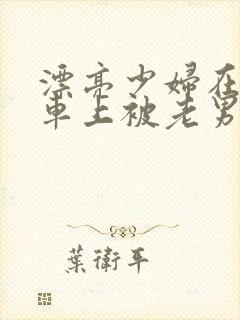 漂亮少婦在
車上被老男
葉衛平